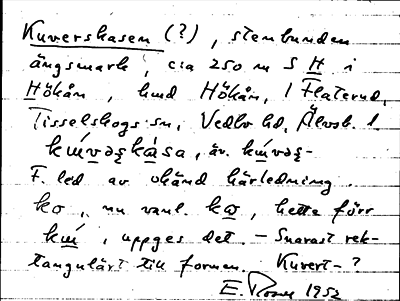 Kuverskasen (?), stenbunden
ängsmark, c:a 250 m S H i
Hökån, hmd Hökån, 1 Flaterud,
Tisselskogs sn, Vedbo hd, Älvsb. l.
av
F. led av okänd härledning.
ko, nu vanl. hette förr
uppges det. – Snarast rek-
tangulärt till formen. Kuvert- ?
E. Rosen 1952